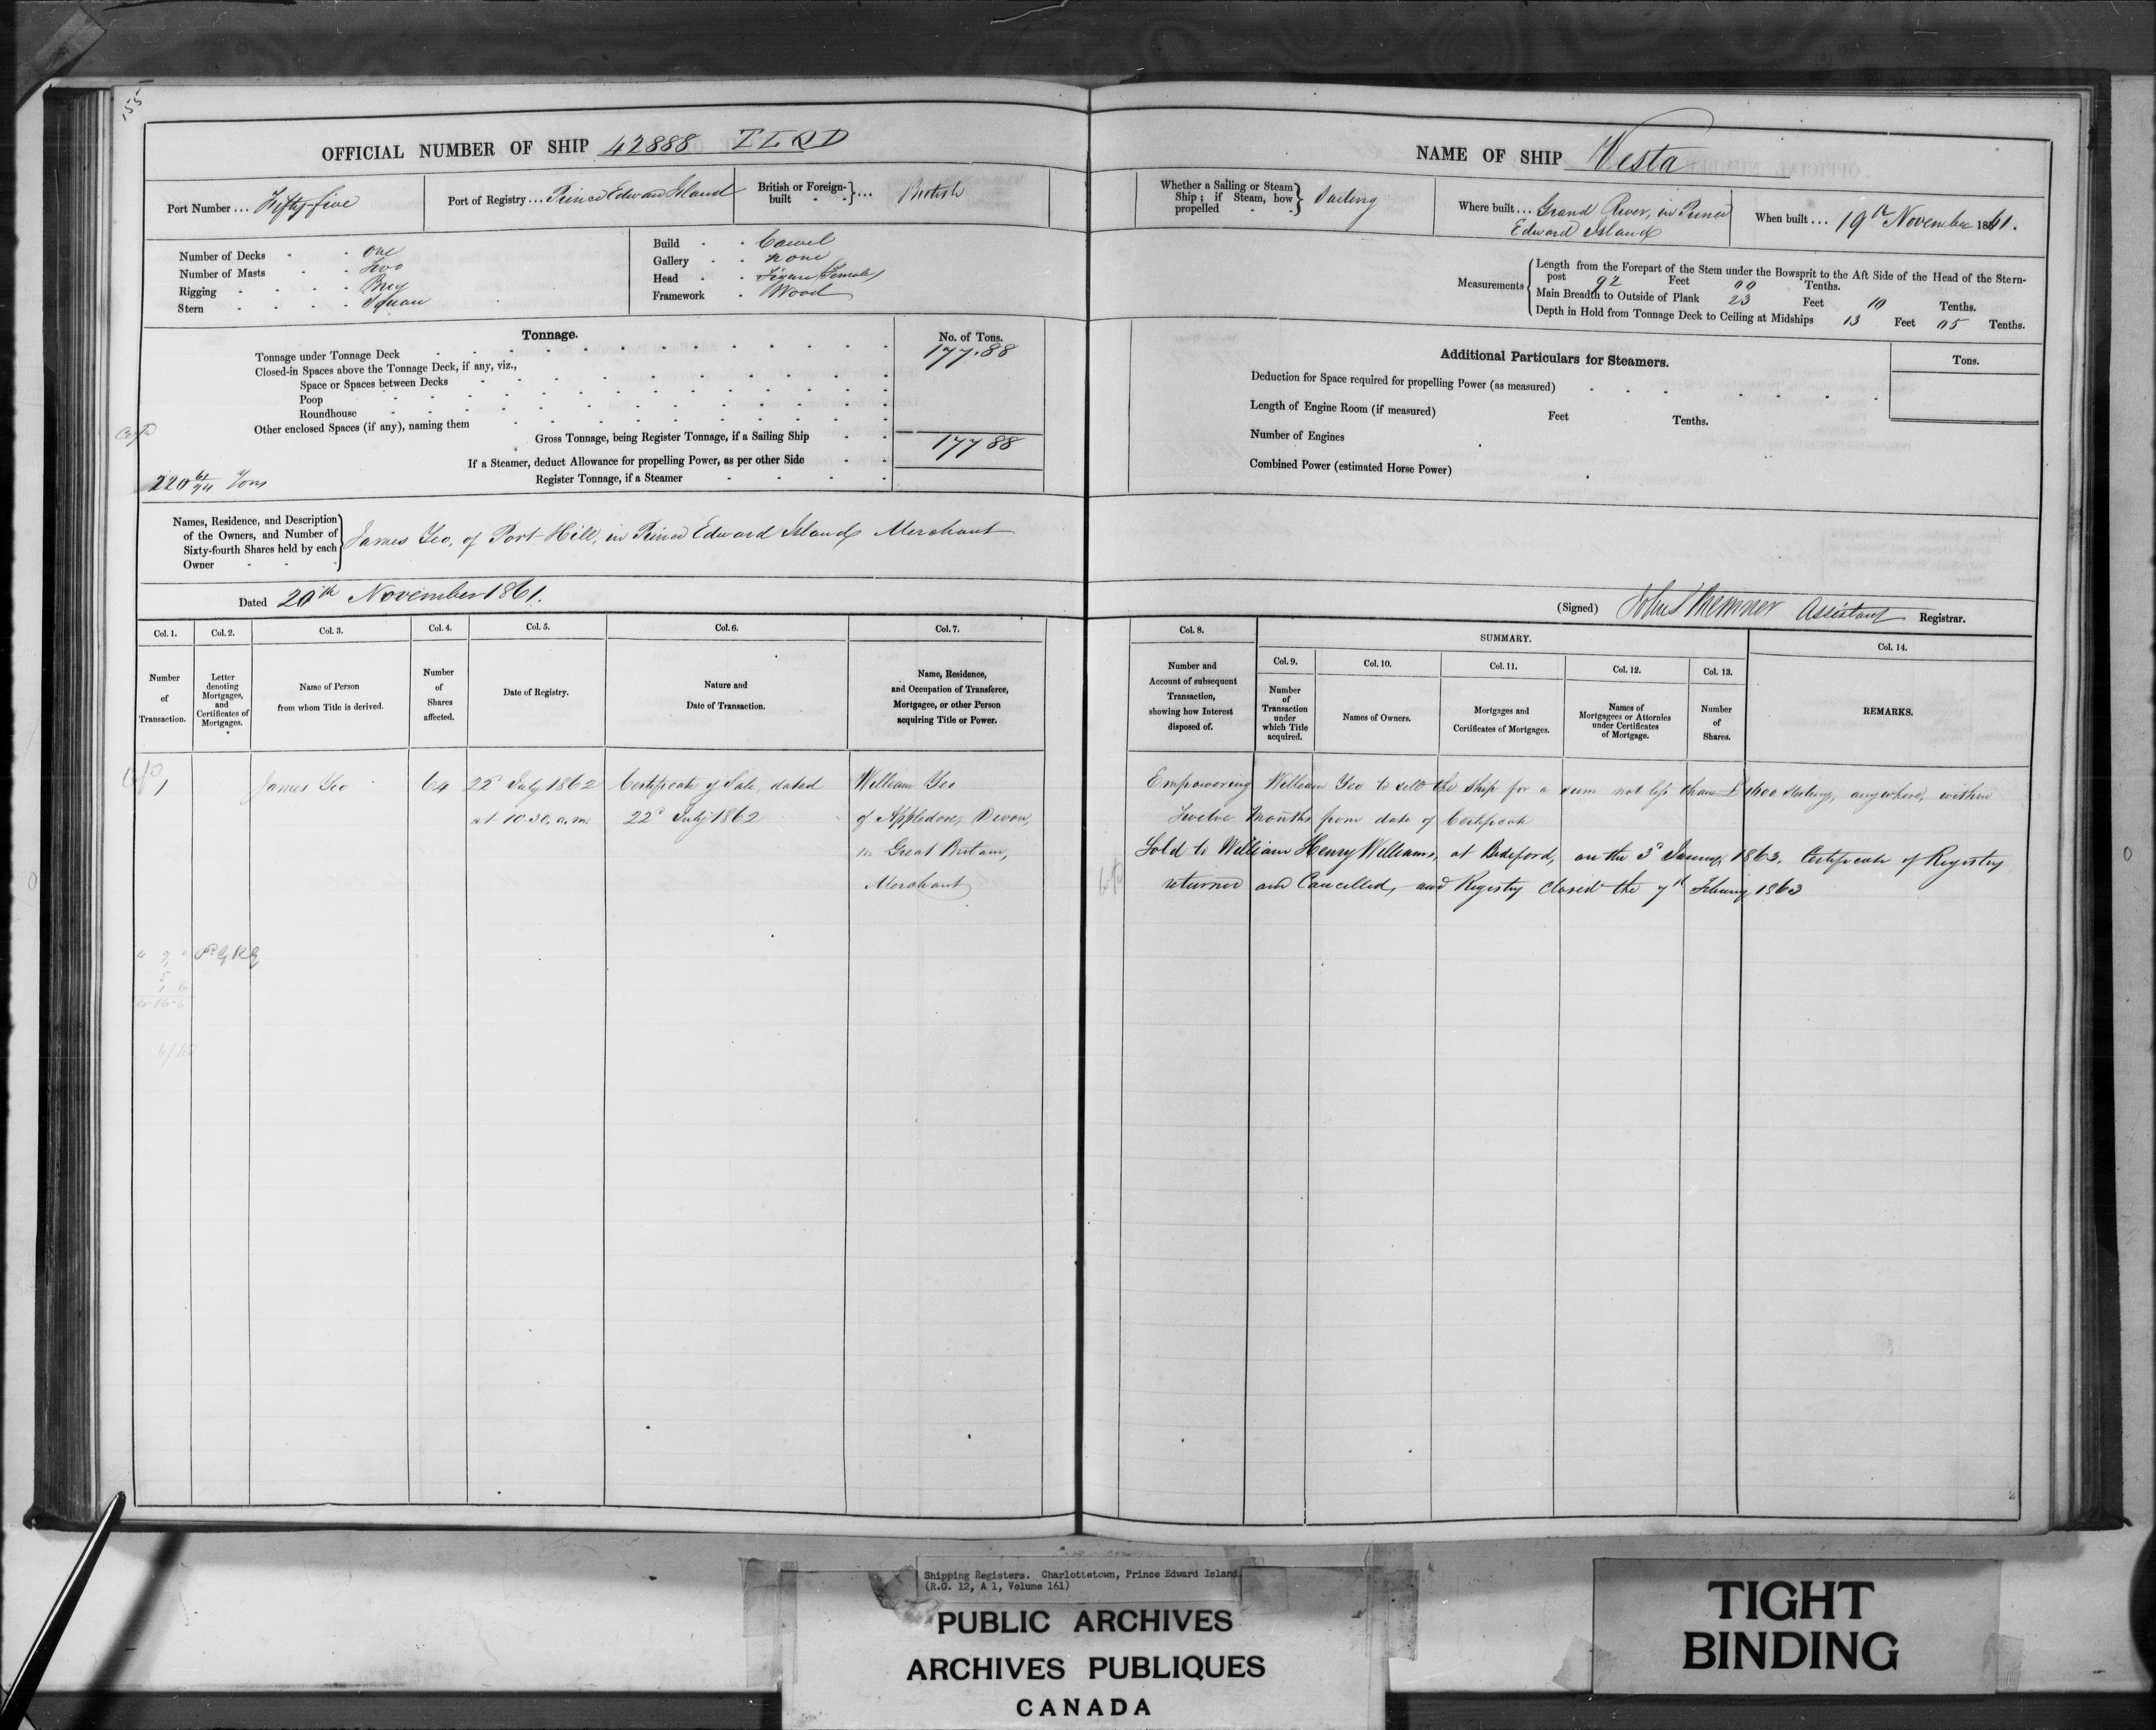 155
OFFICIAL NUMBER OF SHIP 42888 T L R D
Port Number ... Fifty-five
Port of Registry ... Prince Edward Island
British or Foreign-built ... British
Number of Decks - - One
Number of Masts - - Two
Rigging - - - - Brig
Stern - - - - Square
Build - - Carvel
Gallery - - none
Head - - Figure, Female
Framework - Wood
Tonnage.
No. of Tons.
Tonnage under Tonnage Deck 177.88
Closed-in Spaces above the Tonnage Deck, if any, viz.,
Space or Spaces between Decks
Poop
Roundhouse
Other enclosed Spaces (if any), naming them
Gross Tonnage, being Register Tonnage, if a Sailing Ship 177 88
If a Steamer, deduct Allowance for propelling Power, as per other Side
220 61/94 Tons
Register Tonnage, if a Steamer
Names, Residence, and Description of the Owners, and Number of Sixty-fourth Shares held by each Owner
James Yeo, of Port-Hill, in Prince Edward Island Merchant
Dated 20th November 1861.
Col. 1. Col. 2. Col. 3. Col. 4. Col. 5. Col. 6. Col. 7.
Number of Transaction.
Letter denoting Mortgages, and Certificates of Mortgages.
Name of Person from whom Title is derived.
Number of Shares affected.
Date of Registry.
Nature and Date of Transaction.
Name, Residence, and Occupation of Transferee, Mortgagee, or other Person acquiring Title or Power.
1 James Yeo 64 22d July 1862 Certificate of Sale, dated William Yeo
at 10.30. a.m. 22d July 1862 of Appledore, Devon,
in Great Britain,
Merchant
NAME OF SHIP Vesta
Whether a Sailing or Steam Ship; if Steam, how propelled - - Sailing
Where built ... Grand River, in Prince
Edward Island
When built ... 19th November 1861.
Measurements
Length from the Forepart of the Stem under the Bowsprit to the Aft Side of the Head of the Stern-
post 92 Feet 00 Tenths.
Main Breadth to Outside of Plank 23 Feet 10 Tenths.
Depth in Hold from Tonnage Deck to Ceiling at Midships 13 Feet 05 Tenths.
Additional Particulars for Steamers.
Tons.
Deduction for Space required for propelling Power (as measured)
Length of Engine Room (if measured) Feet Tenths.
Number of Engines
Combined Power (estimated Horse Power)
(Signed) Assistant Registrar.
Col. 8. SUMMARY. Col. 14.
Col. 9. Col. 10. Col. 11. Col. 12. Col. 13.
Number and Account of subsequent Transaction, showing how Interest disposed of.
Number of Transaction under which Title acquired.
Names of Owners.
Mortgages and Certificates of Mortgages.
Names of Mortgagees or Attornies under Certificates of Mortgage.
Number of Shares.
REMARKS.
Empowering William Yeo to sell the Ship for a sum not less than £1600 sterling, anywhere, within
Twelve Months from date of Certificate
Sold to William Henry Williams, at Bideford, on the 3d January 1863. Certificate of Registry
returned and Cancelled, and Registry closed the 7th February 1863
Shipping Registers. Charlottetown, Prince Edward Island.
(R.G. 12, A 1, Volume 161)
PUBLIC ARCHIVES
ARCHIVES PUBLIQUES
CANADA
TIGHT
BINDING